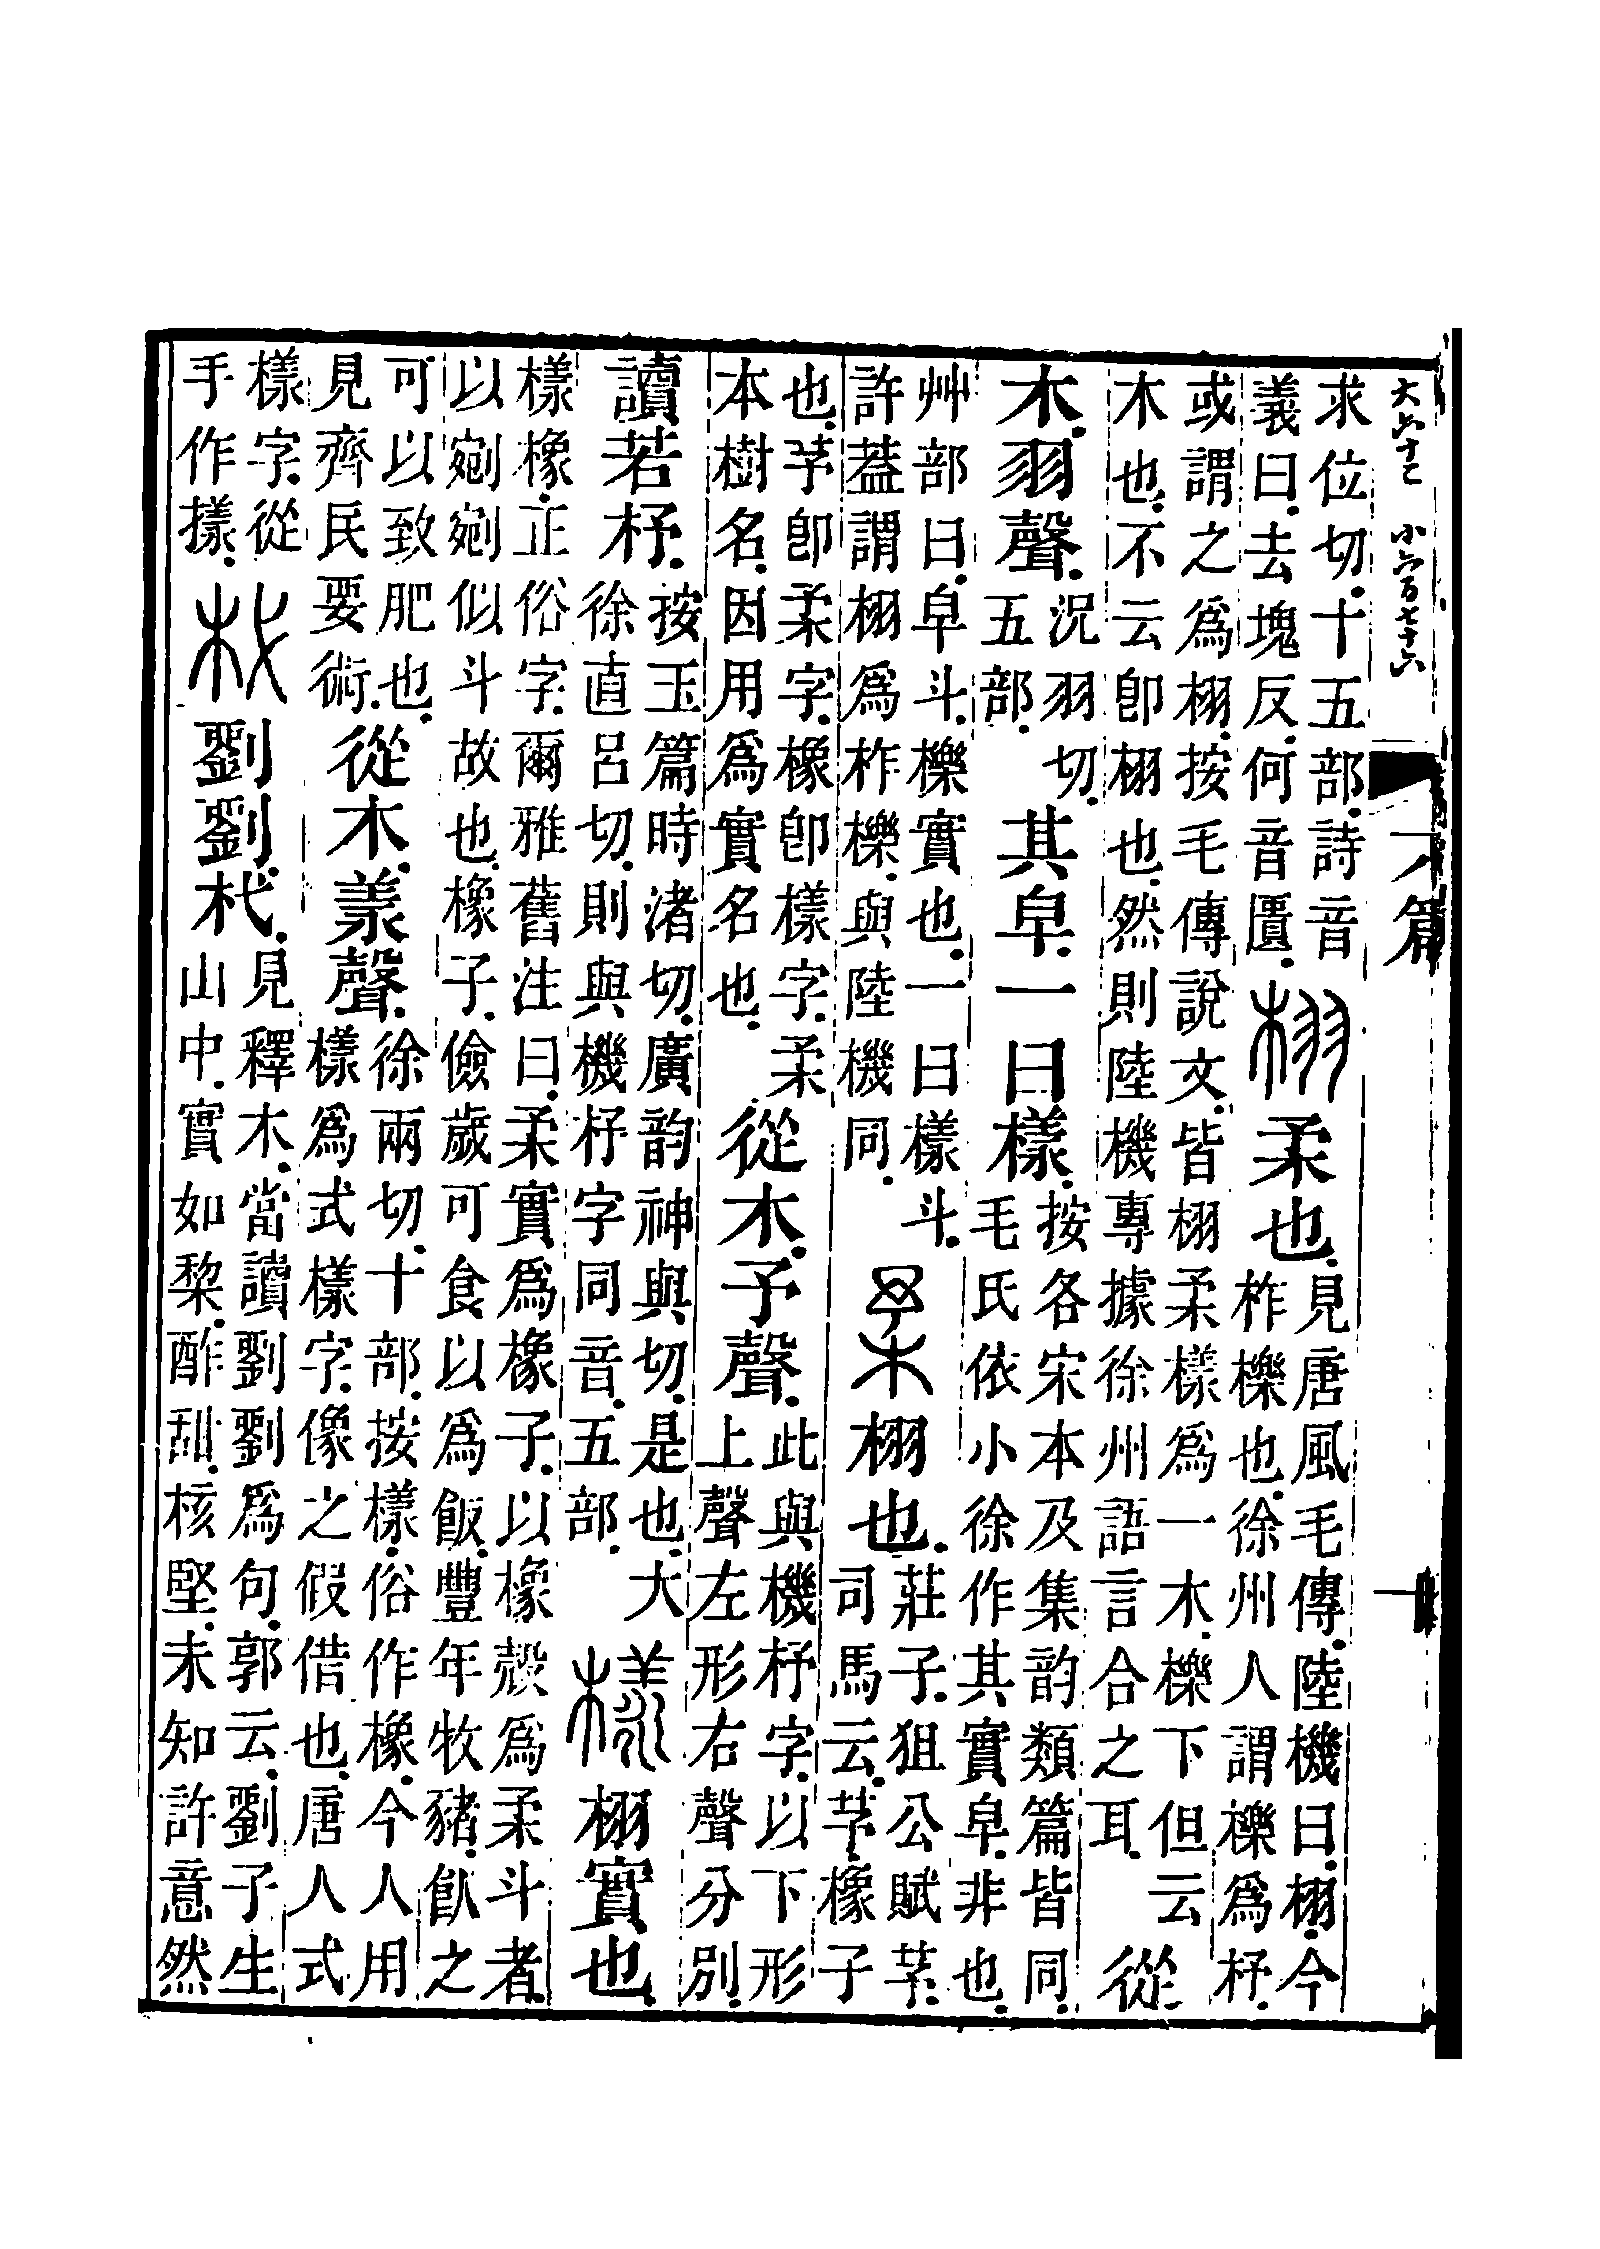 大六十七　小六百七十六
六篇
求位切。十五部。詩音
義曰。去塊反。何音匱。
栩柔也。
見唐風毛傳。陸機曰。栩。今
柞櫟也。徐州人謂櫟爲杼。
或謂之爲栩。按毛傳說文。皆栩柔樣爲一木。櫟下但云
木也。不云卽栩也。然則陸機專據徐州語言合之耳。
從
木。羽聲。
況羽切。
五部。
其皁。一曰樣。
按各宋本及集韵類篇皆同。
毛氏依小徐作其實皁。非也。
艸部曰。皁斗。櫟實也。一曰樣斗。
許葢謂栩爲柞櫟。與陸機同。
柔栩也。
莊子。狙公賦芧。
司馬云。芧。橡子
也。芧卽柔字。橡卽樣字。柔
本樹名。因用爲實名也。
從木。予聲。
此與機杼字。以下形
上聲左形右聲分別。
讀若杼。
按玉篇時渚切。廣韵神與切。是也。大
徐直呂切。則與機杼字同音。五部。
樣栩實也。
樣橡。正俗字。爾雅舊注曰。柔實爲橡子。以橡殼爲柔斗者。
以剜剜似斗故也。橡子。儉歲可食以爲飯。豐年牧豬。飤之
可以致肥也。
見齊民要術。
從木。羕聲。
徐兩切。十部。按樣。俗作橡。今人用
樣爲式樣字。像之假借也。唐人式
樣字。從
手作㨾。
杙劉劉杙。
見釋木。當讀劉劉爲句。郭云。劉子生
山中。實如棃。酢甜。核堅。未知許意然